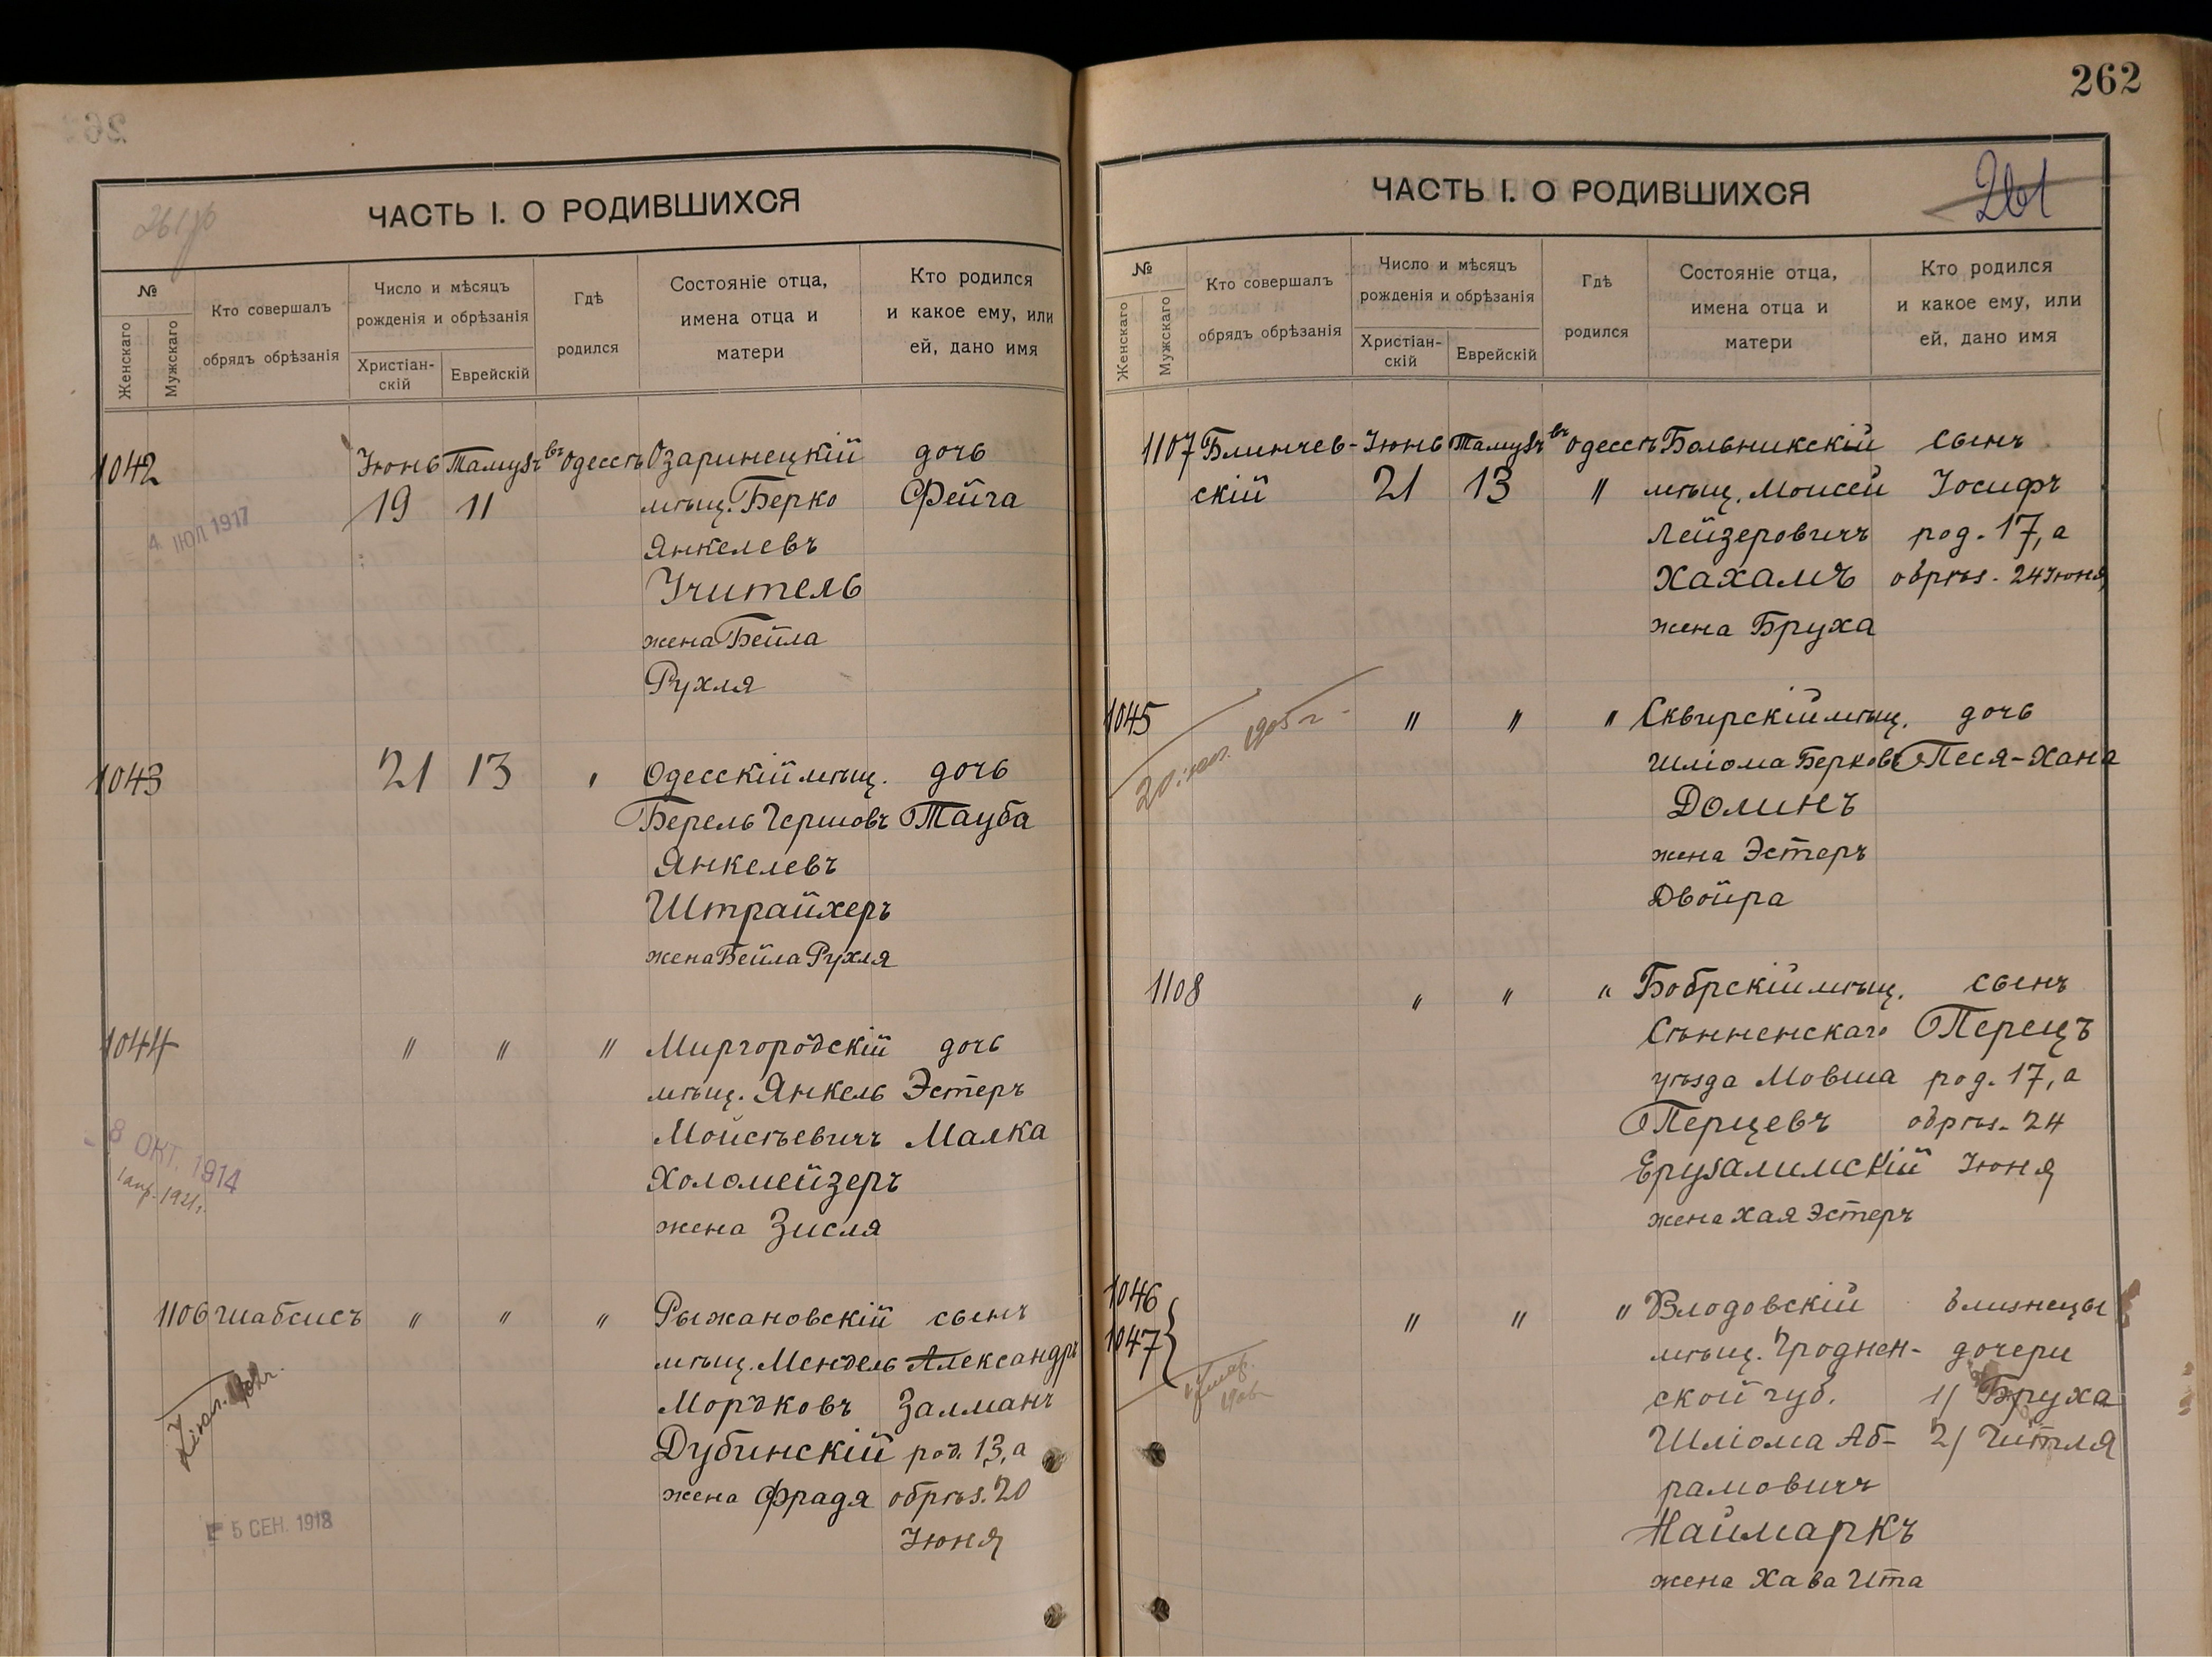 ЧАСТЬ I. О РОДИВШИХСЯ
№
Женскаго
Мужскаго
Кто совершалъ
обрядъ обрѣзанія
Число и мѣсяцъ
рожденія и обрѣзанія
Христіан-
скій
Еврейскій
Гдѣ
родился
Состояніе отца,
имена отца и
матери
Кто родился
и какое ему, или
ей, дано имя
1042 Іюнь Тамузъ въ Одессѣ Озаринецкій дочь
19 11 мѣщ. Берко Фейга
4 ІЮЛ 1917
Янкелевъ
Учитель
жена Бейла
Рухля
1043 21 13 " Одесскій мѣщ. дочь
Берель Гершовъ Тауба
Янкелевъ
Штрайхеръ
жена Бейла Рухля
1044 " " " Миргородскій дочь
мѣщ. Янкель Эстеръ
Мойсѣевичъ Малка
8 ОКТ. 1914
1 апр. 1921 г.
Холомейзеръ
жена Зисля
1106 Шабсисъ " " " Рыжановскій сынъ
мѣщ. Мендель Александръ
Мордковъ Залманъ
Дубинскій род. 13, а
жена Фрадя обрѣз. 20
Іюня
5 СЕН. 1918
262
ЧАСТЬ I. О РОДИВШИХСЯ
261
№
Женскаго
Мужскаго
Кто совершалъ
обрядъ обрѣзанія
Число и мѣсяцъ
рожденія и обрѣзанія
Христіан-
скій
Еврейскій
Гдѣ
родился
Состояніе отца,
имена отца и
матери
Кто родился
и какое ему, или
ей, дано имя
1107 Блинчев- Іюнь Тамузъ въ Одессѣ Больникскій сынъ
скій 21 13 " мѣщ. Моисей Іосифъ
Лейзеровичъ род. 17, а
Хахамъ обрѣз. 24 Іюня
жена Бруха
1045 " " " Сквирскій мѣщ. дочь
20 1905 г.
Шліома Берковъ Песя-Хана
Долинъ
жена Эстеръ
Двойра
1108 " " " Бобрскій мѣщ. сынъ
Сѣнненскаго Перецъ
уѣзда Мовша род. 17, а
Перцевъ обрѣз. 24
Ерузалимскій Іюня
жена Хая Эстеръ
1046
1047 " " " Влодовскій близнецы
мѣщ. Гроднен- дочери
ской губ. 1/ Бруха
Шліома Аб- 2/ Гитля
рамовичъ
Наймаркъ
жена Хава Ита